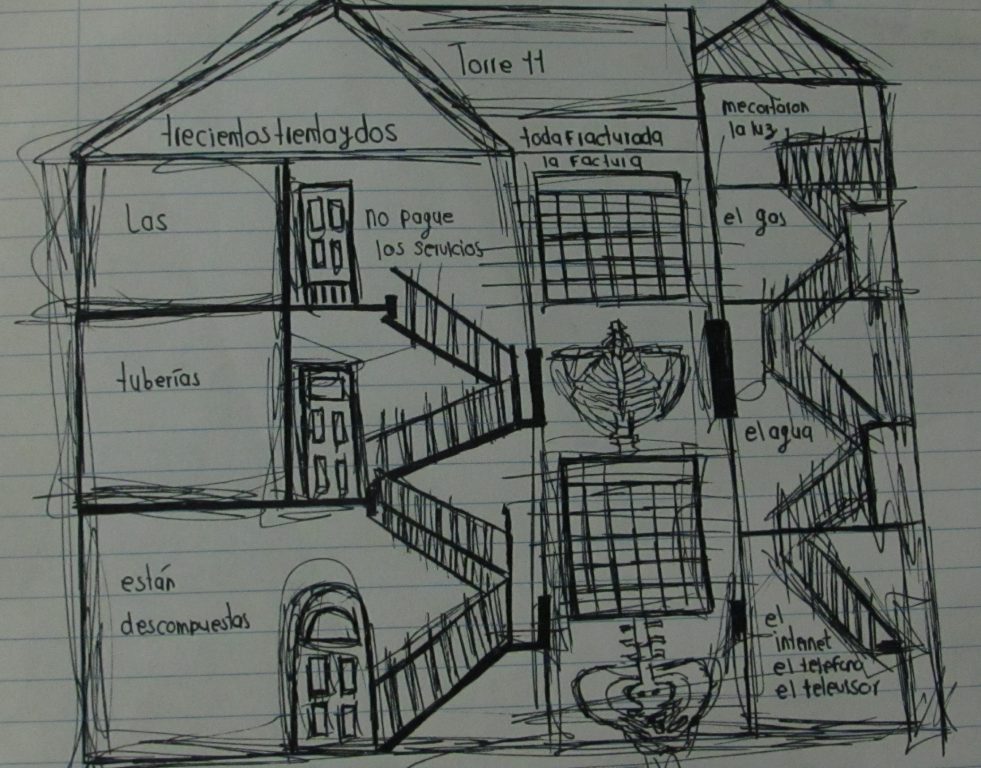 Torre 11
trecientostrentaydos
Las
tuberías
están
descompuestas
no pague
los servicios
toda fracturada
la factura
me cortaron
la luz
el gas
el agua
el
internet
el telefono
el televisor